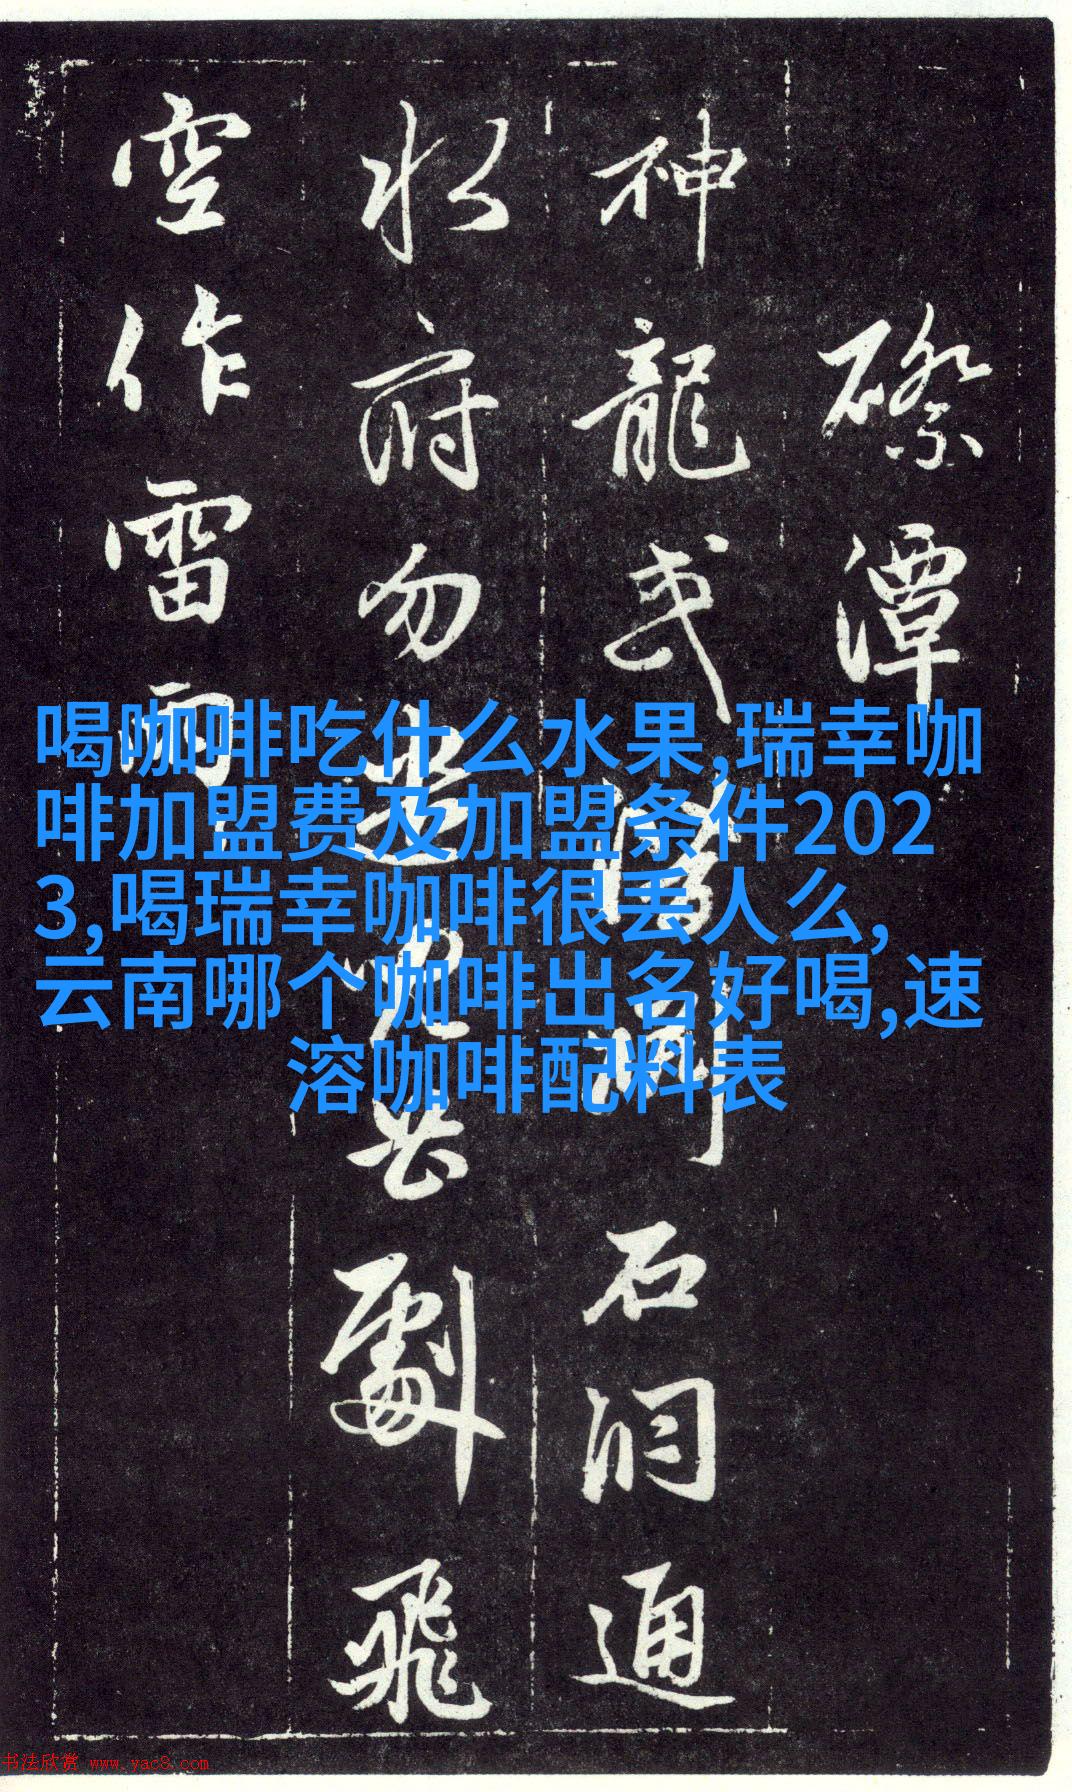 磜潭
神龍或潛石洞通
水府勿劇飛
空作雷雨
喝咖啡吃什么水果,瑞幸咖
啡加盟费及加盟条件202
3,喝瑞幸咖啡很丢人么,
云南哪个咖啡出名好喝,速
溶咖啡配料表
书法欣赏 www.yac8.com